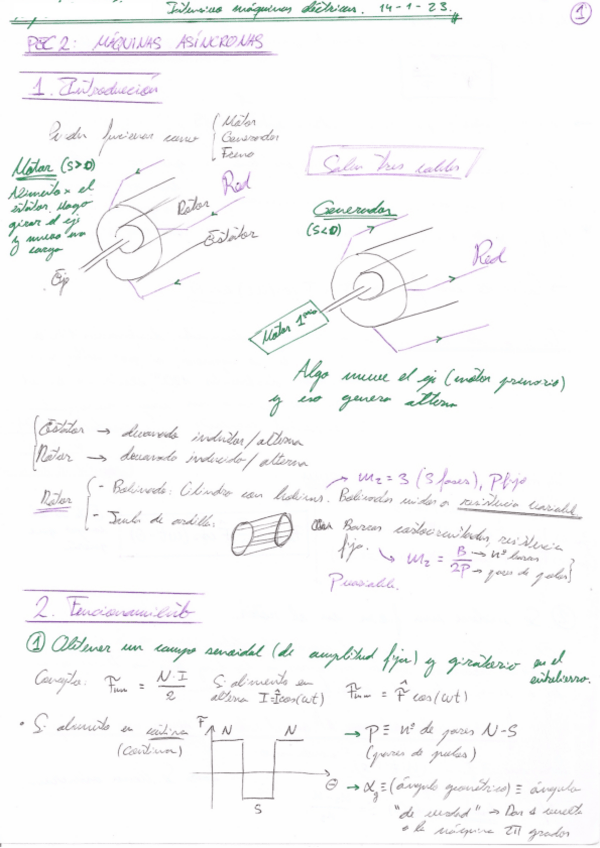 Intensivo máquinas eléctricas. 14-1-23.
1
PEC 2: MÁQUINAS ASÍNCRONAS
1. Introducción
Pueden funcionar como { Motor
Generador
Freno
Motor (S>0)
Alimento x el
estátor, hago
girar el eje
y muevo una
carga
Red
Rotor
Estátor
Eje
Salen tres cables
Generador
(S<0)
Red
Motor 1ario
Algo mueve el eje (motor primario)
y eso genera alterna
Estátor → devanado inductor/alterna
Rotor → devanado inducido/alterna
Rotor
- Bobinado: Cilindro con bobinas. Bobinados unidos a resistencia variable
→ m₂ = 3 (3 fases), P fijo
- Jaula de ardilla:
Barras cortocircuitadas, resistencia
fija. → m₂ = B/2P → nº barras
→ pares de polos
P variable.
2. Funcionamiento
① Obtener un campo senoidal (de amplitud fija) y giratorio en el
entrehierro.
Concepto: Fmm = N·I/2 Si alimento en
alterna I=Îcos(ωt) Fmm = F̂ cos(ωt)
• Si alimento en continua
(continua)
F N N
S
Θ
→ P ≡ nº de pares N-S
(pares de polos)
→ αg ≡ (ángulo geométrico) ≡ ángulo
"de verdad" → Dar 1 vuelta
a la máquina 2π grados